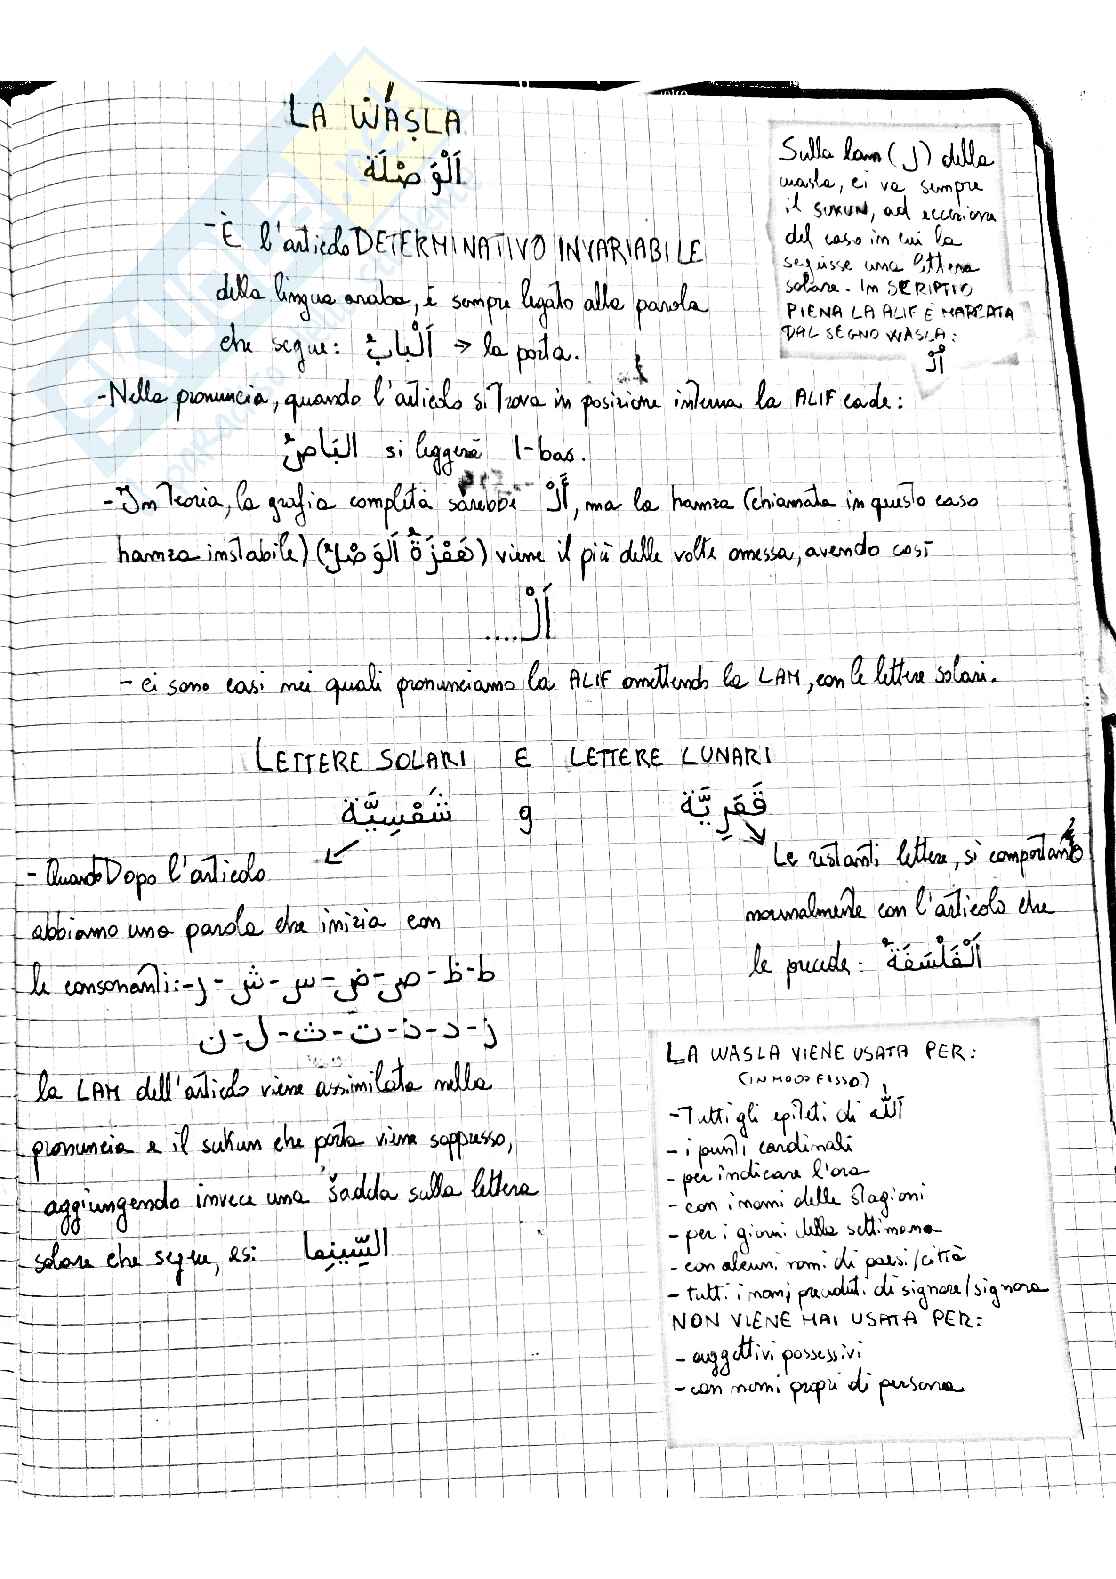 LA WÁṢLA
اَلْوَصْلَة
- È l'articolo DETERMINATIVO INVARIABILE
della lingua araba, è sempre legato alla parola
che segue: اَلْبابُ → la porta.
Sulla lam (ل) della
wasla, ci va sempre
il SUKUN, ad eccezione
del caso in cui la
seguisse una lettera
solare. In SCRIPTIO
PIENA LA ALIF È MARCATA
DAL SEGNO WASLA:
- Nella pronuncia, quando l'articolo si trova in posizione interna la ALIF cade:
البَاصُ si leggerà l-bas.
- In Teoria, la grafia completa sarebbe أَلْ, ma la hamza (chiamata in questo caso
hamza instabile) (هَمْزَةُ اَلْوَصْلِ) viene il più delle volte omessa, avendo così
اَلْ....
- ci sono casi nei quali pronunciamo la ALIF omettendo la LAM, con le lettere solari.
LETTERE SOLARI E LETTERE LUNARI
شَمْسِيَّة و قَمَرِيَّة
- Quando Dopo l'articolo
abbiamo una parola che inizia con
le consonanti: ط - ظ - ض - ص - س - ش - ر -
ز - د - ذ - ت - ث - ل - ن
la LAM dell'articolo viene assimilata nella
pronuncia e il sukun che porta viene soppresso,
aggiungendo invece una šadda sulla lettera
solare che segue, es: السِّينِما
Le restanti lettere, si comportano
normalmente con l'articolo che
le precede: اَلْفَلْسَفَةُ
LA WASLA VIENE USATA PER:
(IN MODO FISSO)
- Tutti gli epiteti di اَللّه
- i punti cardinali
- per indicare l'ora
- con i nomi delle stagioni
- per i giorni della settimana
- con alcuni nomi di paesi/città
- tutti i nomi preceduti di signore/signora
NON VIENE MAI USATA PER:
- aggettivi possessivi
- con nomi propri di persona